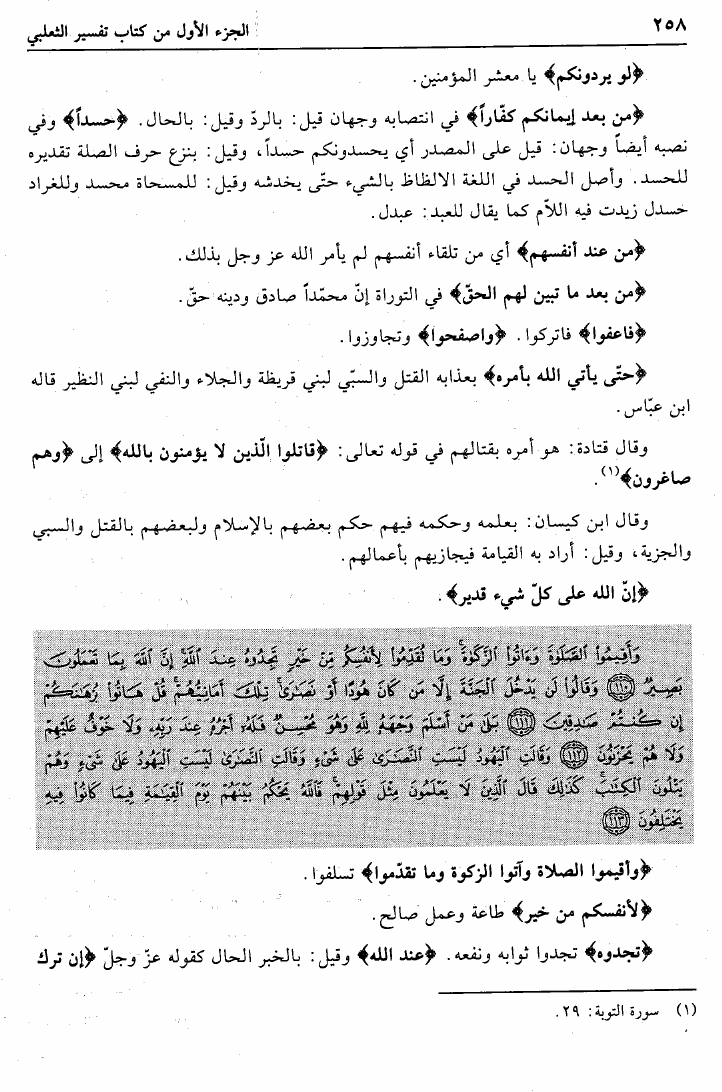 ٢٥٨
الجزء الأول من كتاب تفسير الثعلبي
﴿لو يردونكم﴾ يا معشر المؤمنين.
﴿من بعد إيمانكم كفّاراً﴾ في انتصابه وجهان قيل: بالردّ وقيل: بالحال. ﴿حسداً﴾ وفي
نصبه أيضاً وجهان: قيل على المصدر أي يحسدونكم حسداً، وقيل: بنزع حرف الصلة تقديره
للحسد. وأصل الحسد في اللغة الالظاظ بالشيء حتّى يخدشه وقيل: للمسحاة محسد وللغراد
حسدل زيدت فيه اللاّم كما يقال للعبد: عبدل.
﴿من عند أنفسهم﴾ أي من تلقاء أنفسهم لم يأمر الله عز وجل بذلك.
﴿من بعد ما تبين لهم الحقّ﴾ في التوراة إنّ محمّداً صادق ودينه حقّ.
﴿فاعفوا﴾ فاتركوا. ﴿واصفحوا﴾ وتجاوزوا.
﴿حتّى يأتي الله بأمره﴾ بعذابه القتل والسبّي لبني قريظة والجلاء والنفي لبني النظير قاله
ابن عبّاس.
وقال قتادة: هو أمره بقتالهم في قوله تعالى: ﴿قاتلوا الّذين لا يؤمنون بالله﴾ إلى ﴿وهم
صاغرون﴾(١).
وقال ابن كيسان: بعلمه وحكمه فيهم حكم بعضهم بالإسلام ولبعضهم بالقتل والسبي
والجزية، وقيل: أراد به القيامة فيجازيهم بأعمالهم.
﴿إنّ الله على كلّ شيء قدير﴾.
وَأَقِيمُوا۟ ٱلصَّلَوٰةَ وَءَاتُوا۟ ٱلزَّكَوٰةَ ۚ وَمَا تُقَدِّمُوا۟ لِأَنفُسِكُم مِّنْ خَيْرٍ تَجِدُوهُ عِندَ ٱللَّهِ ۗ إِنَّ ٱللَّهَ بِمَا تَعْمَلُونَ
بَصِيرٌ ﴿١١٠﴾ وَقَالُوا۟ لَن يَدْخُلَ ٱلْجَنَّةَ إِلَّا مَن كَانَ هُودًا أَوْ نَصَٰرَىٰ ۗ تِلْكَ أَمَانِيُّهُمْ ۗ قُلْ هَاتُوا۟ بُرْهَٰنَكُمْ
إِن كُنتُمْ صَٰدِقِينَ ﴿١١١﴾ بَلَىٰ مَنْ أَسْلَمَ وَجْهَهُۥ لِلَّهِ وَهُوَ مُحْسِنٌ فَلَهُۥٓ أَجْرُهُۥ عِندَ رَبِّهِۦ وَلَا خَوْفٌ عَلَيْهِمْ
وَلَا هُمْ يَحْزَنُونَ ﴿١١٢﴾ وَقَالَتِ ٱلْيَهُودُ لَيْسَتِ ٱلنَّصَٰرَىٰ عَلَىٰ شَىْءٍ وَقَالَتِ ٱلنَّصَٰرَىٰ لَيْسَتِ ٱلْيَهُودُ عَلَىٰ شَىْءٍ وَهُمْ
يَتْلُونَ ٱلْكِتَٰبَ ۗ كَذَٰلِكَ قَالَ ٱلَّذِينَ لَا يَعْلَمُونَ مِثْلَ قَوْلِهِمْ ۚ فَٱللَّهُ يَحْكُمُ بَيْنَهُمْ يَوْمَ ٱلْقِيَٰمَةِ فِيمَا كَانُوا۟ فِيهِ
يَخْتَلِفُونَ ﴿١١٣﴾
﴿وأقيموا الصلاة وآتوا الزكوة وما تقدّموا﴾ تسلفوا.
﴿لأنفسكم من خير﴾ طاعة وعمل صالح.
﴿تجدوه﴾ تجدوا ثوابه ونفعه. ﴿عند الله﴾ وقيل: بالخبر الحال كقوله عزّ وجلّ ﴿إن ترك
(١) سورة التوبة: ٢٩.